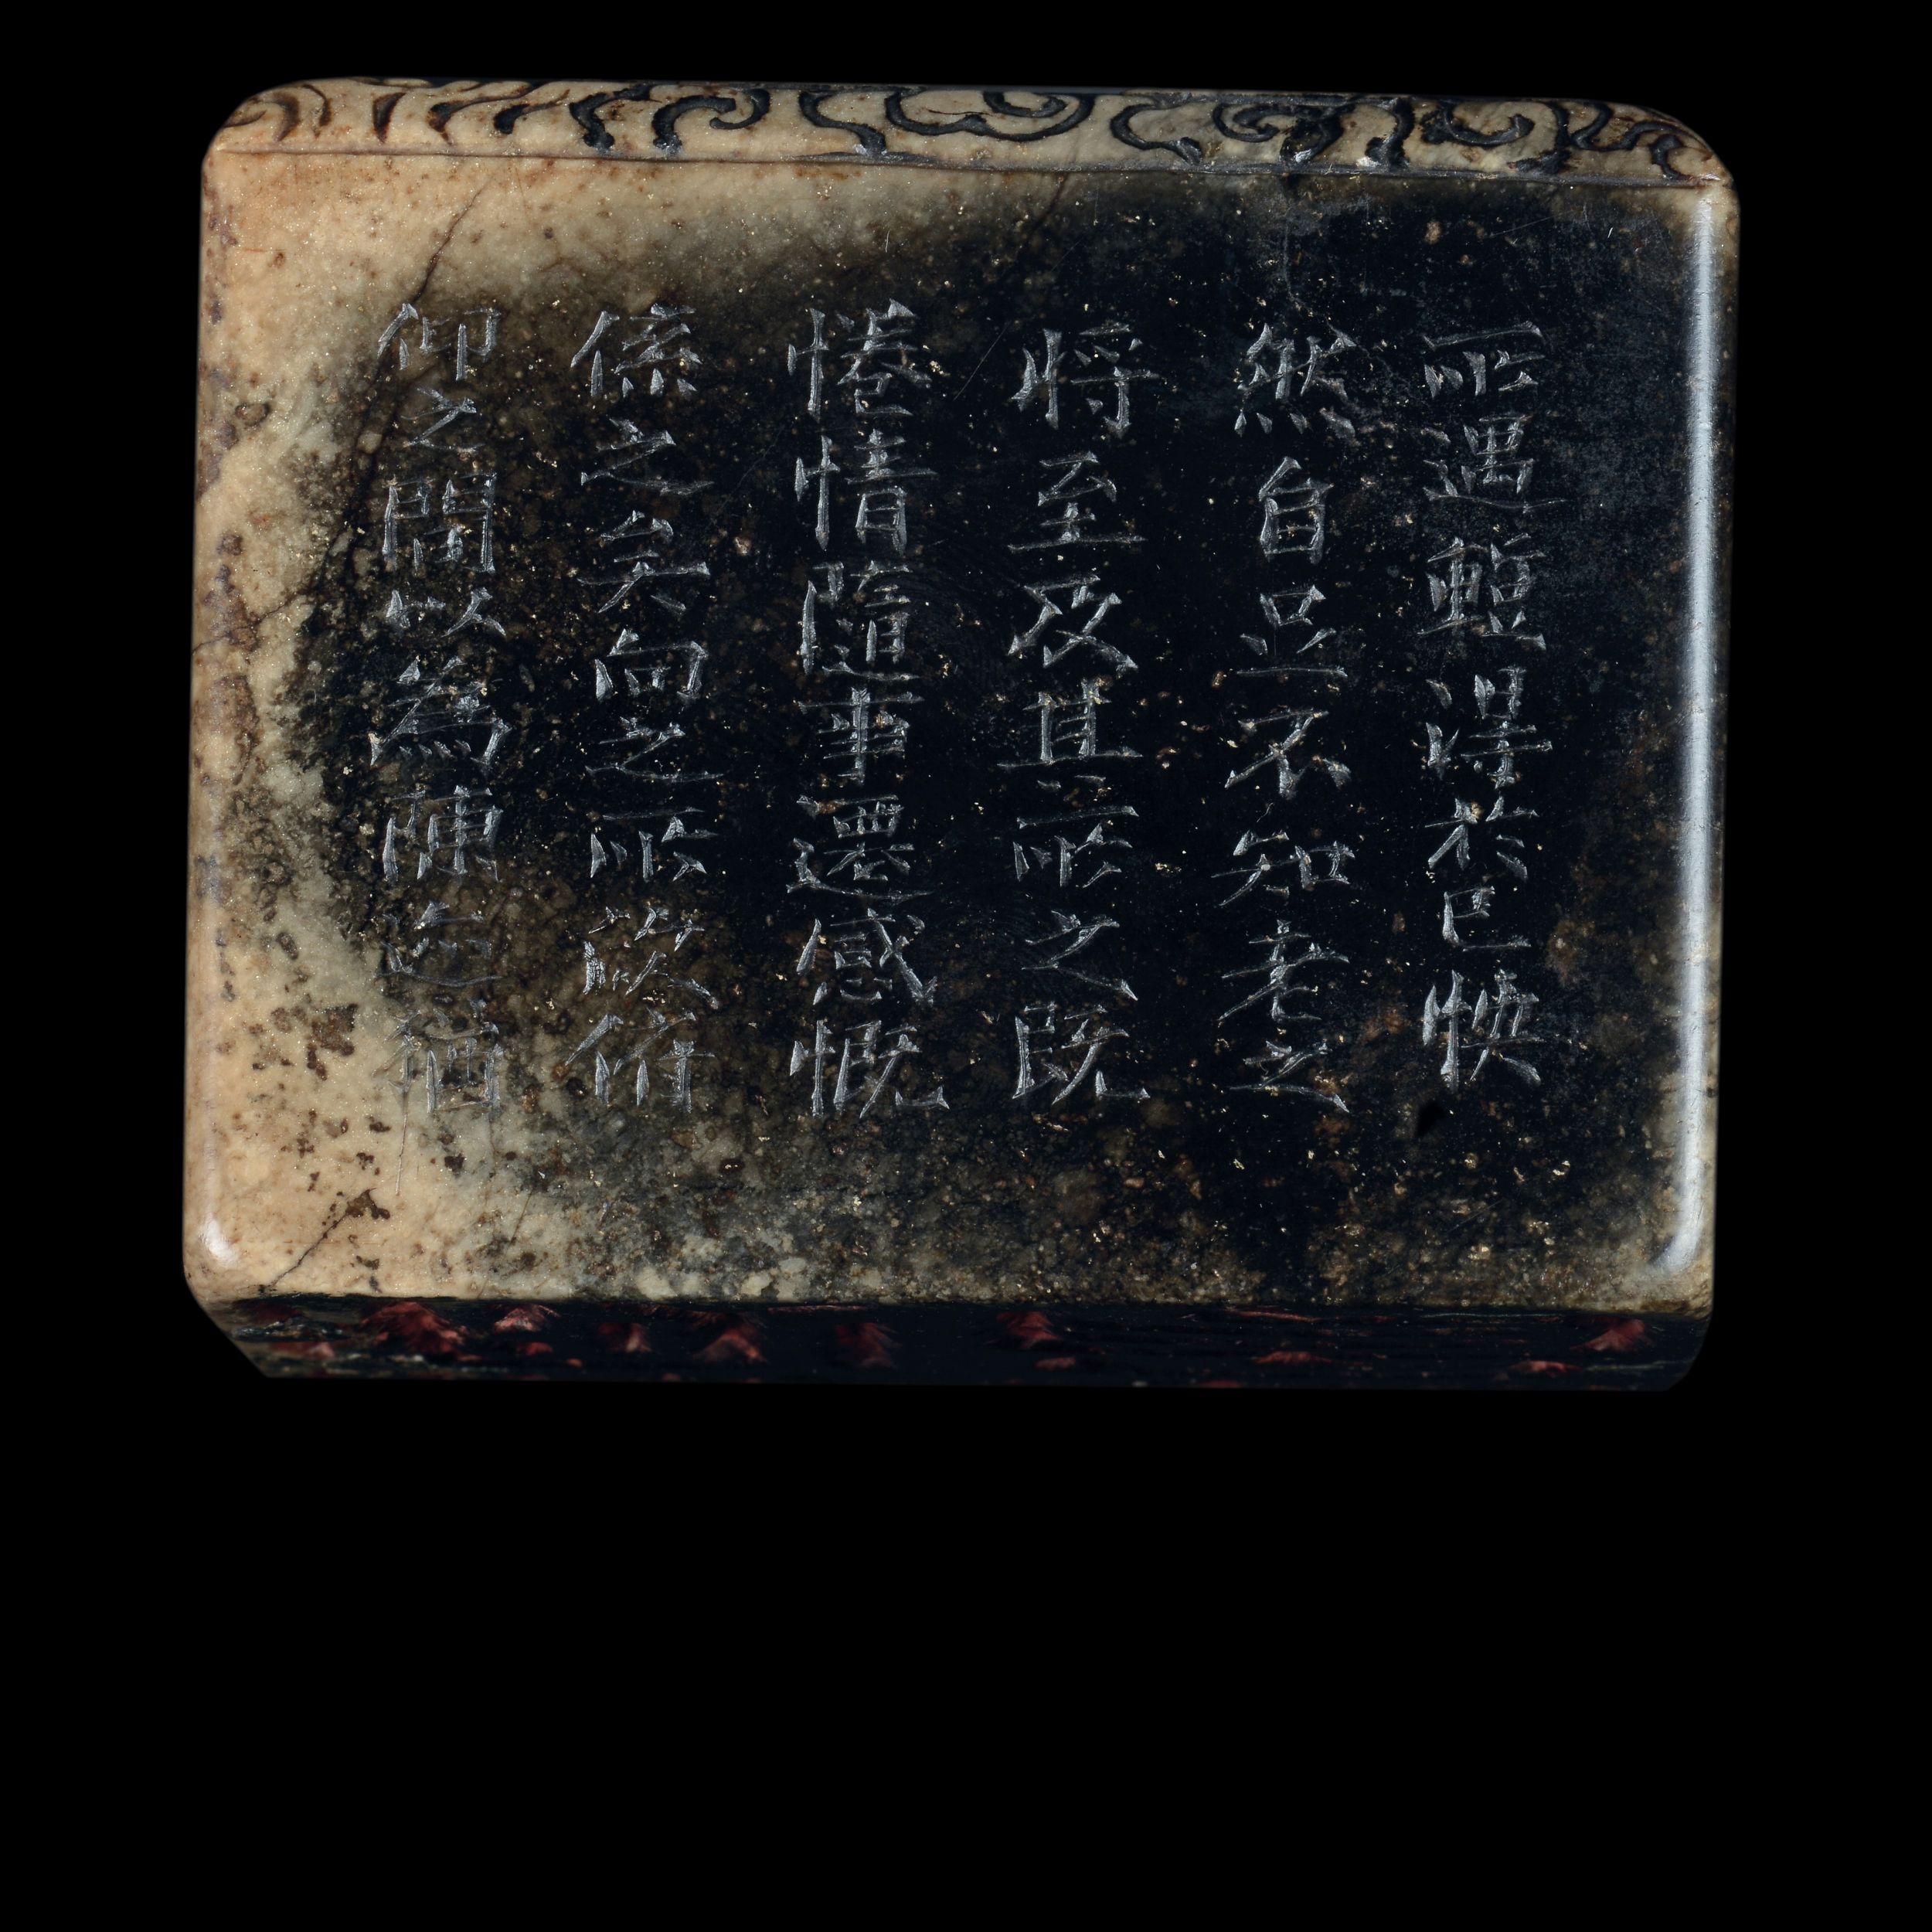 所遇蹔得於己怏
然自足不知老之
将至及其所之既
惓情隨事遷感慨
係之矣向之所欣俯
仰之閒以為陳迹猶